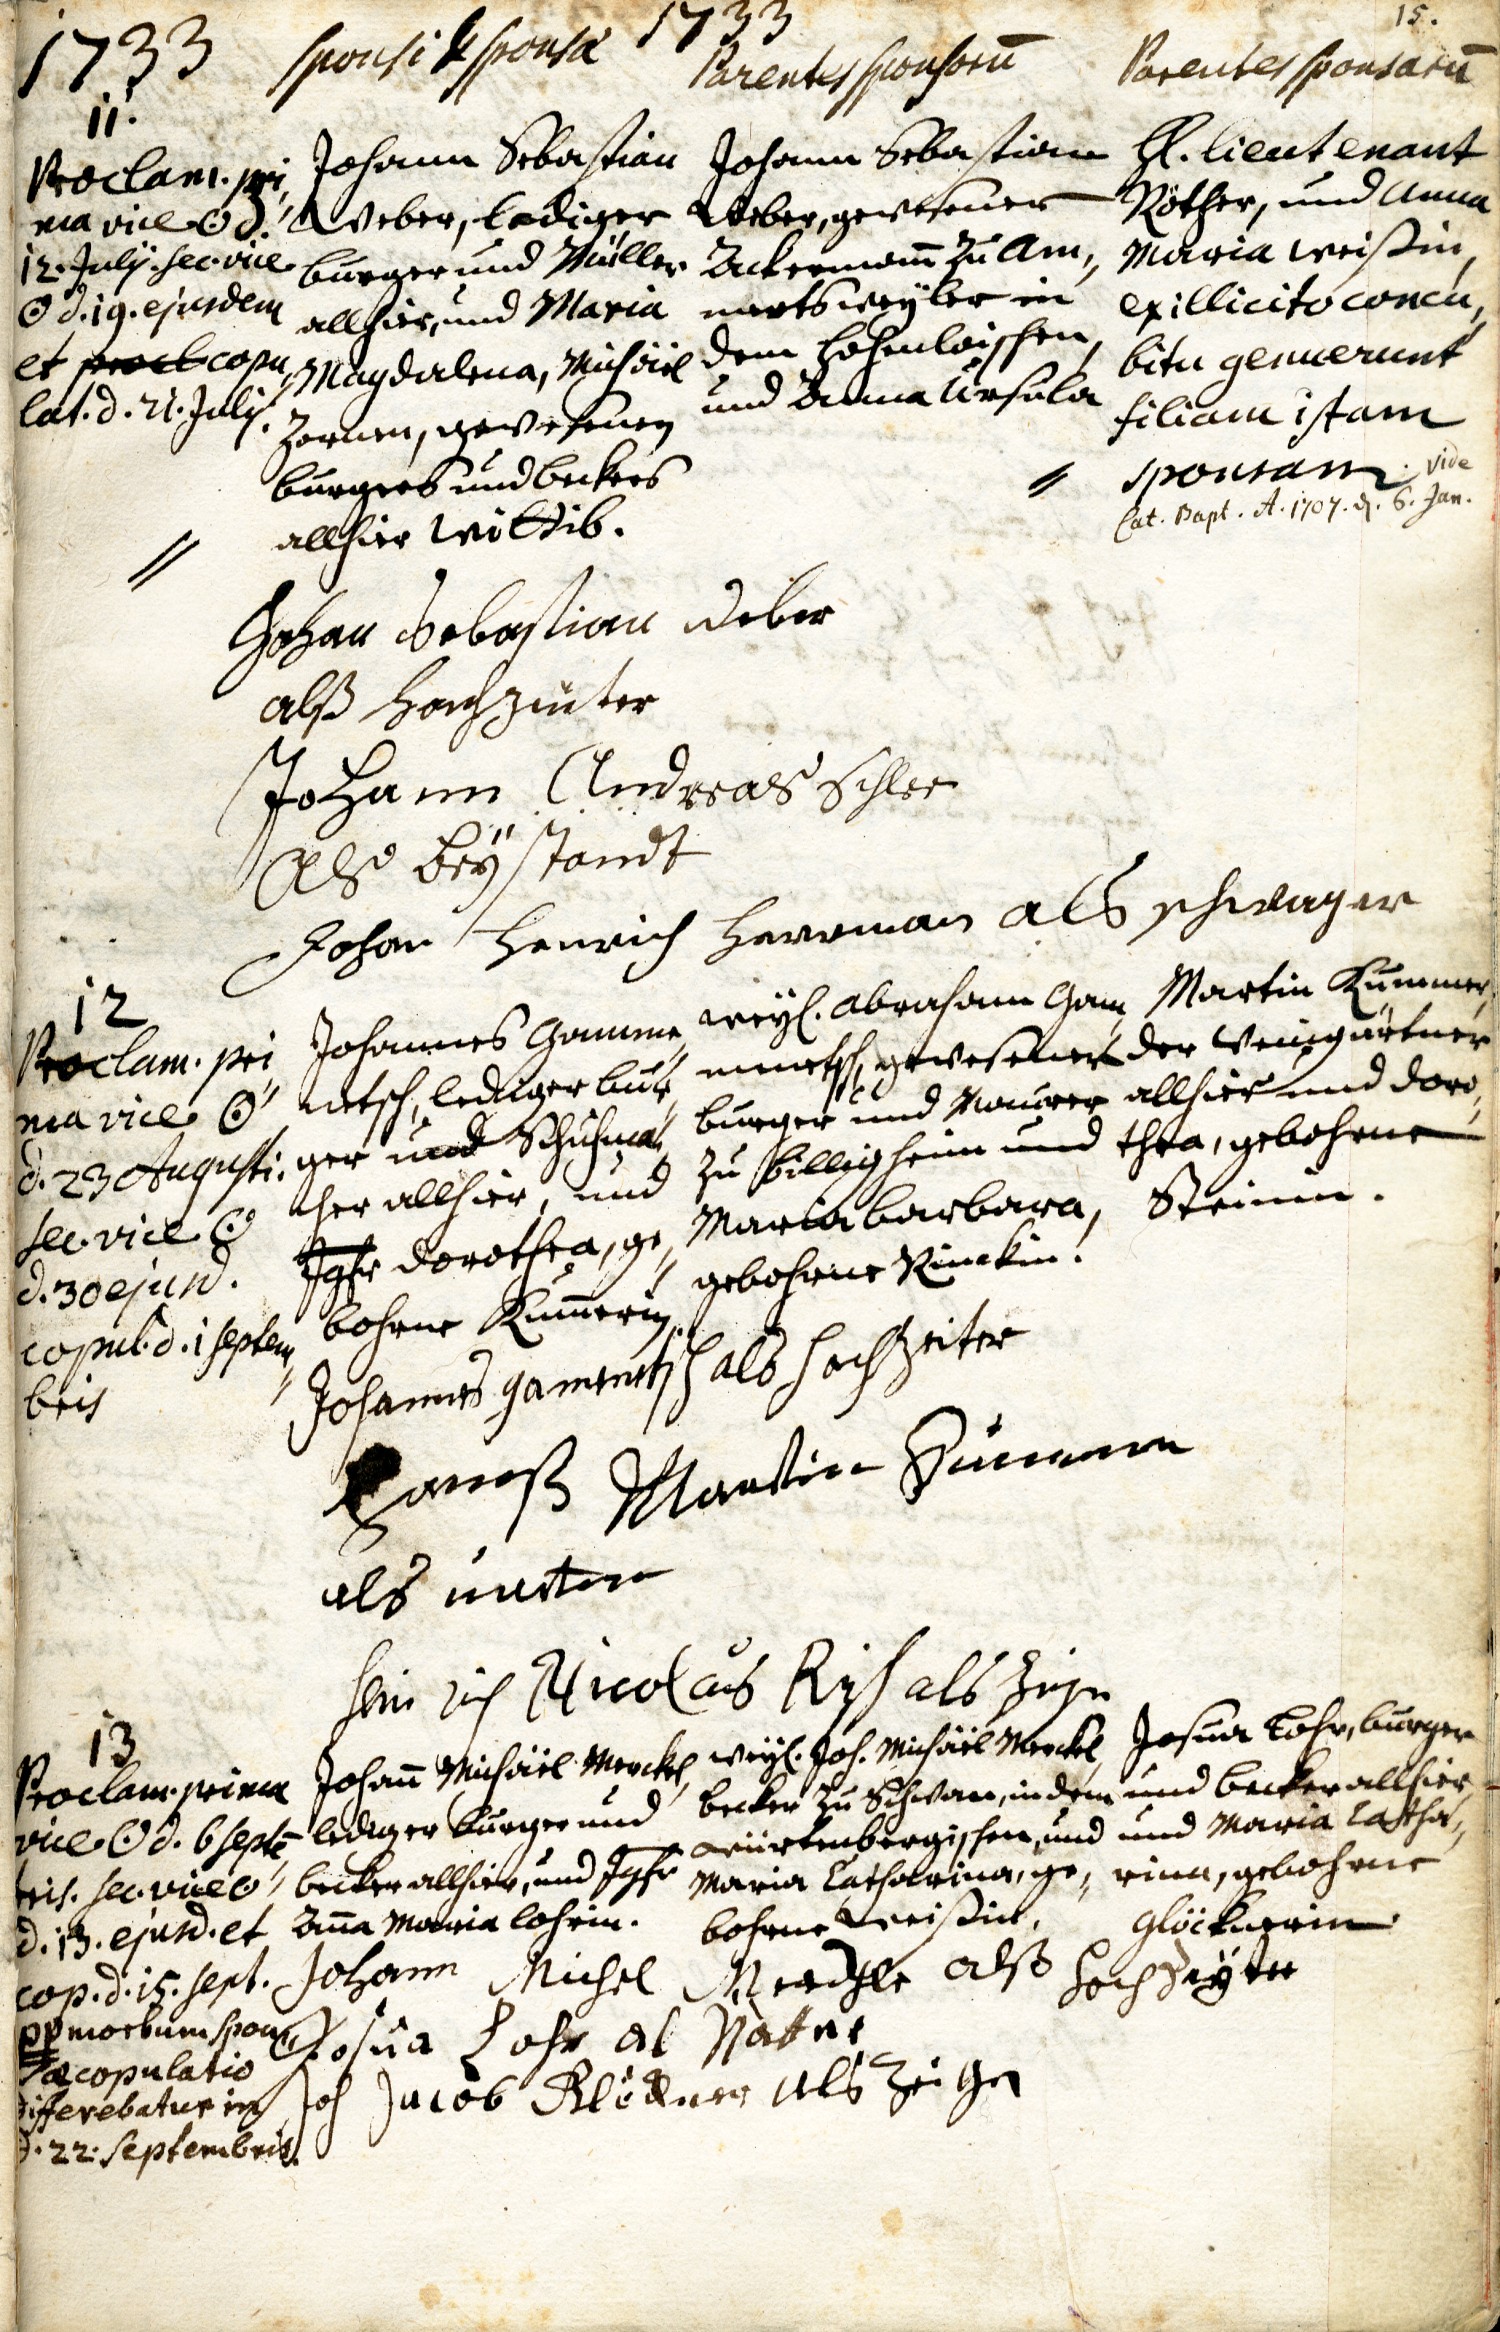 15.
1733
sponsi & sponsæ
1733
Parentes sponsorū
Parentes sponsarū
11.
Proclam. pri,
ma vice ☉ d.
12. July. sec. vice
☉ d. 19. ejusdem
et copu,
lat. d. 21. July.
Johann Sebastian
Weber, lediger
burger und Müller
allhier, und Maria
Magdalena, Michäel
Zornen, gewesenen
burgers und beckers
allhier wittib.
Johann Sebastian
Weber, gewesener
Ackermann zu Am,
dem Hohenloischen,
und Anna Ursula
H. lieutenant
Röther, und Anna
Maria weißin,
ex illicito concu,
bitu genuerunt
filiam istam
sponsam. vide
Cat. Bapt. A. 1707. d. 6. Jan.
Johan Sebastian Weber
alß hochzeiter
Johann Andreas Schlee
Als beÿstandt
Johan Henrich Herrman als schwager
12
Proclam. pri
ma vice ☉
d. 23 Augusti.
sec. vice ☉
d. 30 ejusd.
copul. d. 1 septem,
bris
Johannes Gamme,
netsch, lediger bur,
ger und Schuhma,
cher allhier, und
Jgfr Dorothea, ge,
bohrne Kum̄erin.
weyl. Abraham Gam,
menetsch, gewesener
burger und Maurer
zu billigheim und
Maria barbara,
gebohrne Rinckin.
Martin Kummer,
der Weingärtner
allhier und Doro,
thea, gebohrne
Steinin.
Johannes gamenetsch als hochzeiter
Martin Kummer
als
Heinrich Nicolaus Rÿs als Zeige
13
Proclam. prima
vice ☉ d. 6 septē,
bris. sec. vice ☉
d. 13. ejusd. et
cop. d. 15. sept.
pp morbum spon,
sæ copulatio
differebatur in
d. 22. septembris.
Johañ Michäel Merckel,
lediger burger und
becker allhier, und Jgfr
Añа Maria Lohrin.
weyl. Joh. Michäel Merckel,
becker zu Schwan, in dem
würtenbergischen, und
Maria Catharina, ge,
bohrne Weißin.
Josua Lohr, burger
und becker allhier,
und Maria Catha,
rina, gebohrne
Glöcknerin
Johann Michel Merckhle alß hochzeÿter
Josua Lohr al Vatter
Joh Jacob Klöckner als Zeigen